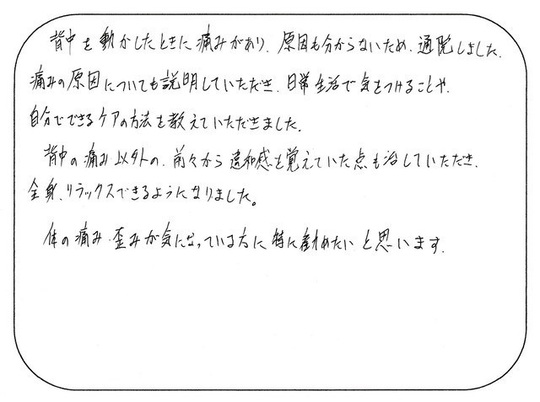 背中を動かしたときに痛みがあり、原因も分からないため、通院しました。
痛みの原因についても説明していただき、日常生活で気をつけることや、
自分でできるケアの方法を教えていただきました。
背中の痛み以外の、前々から違和感を覚えていた点も治していただき、
全身、リラックスできるようになりました。
体の痛み・歪みが気になっている方に特に勧めたいと思います。